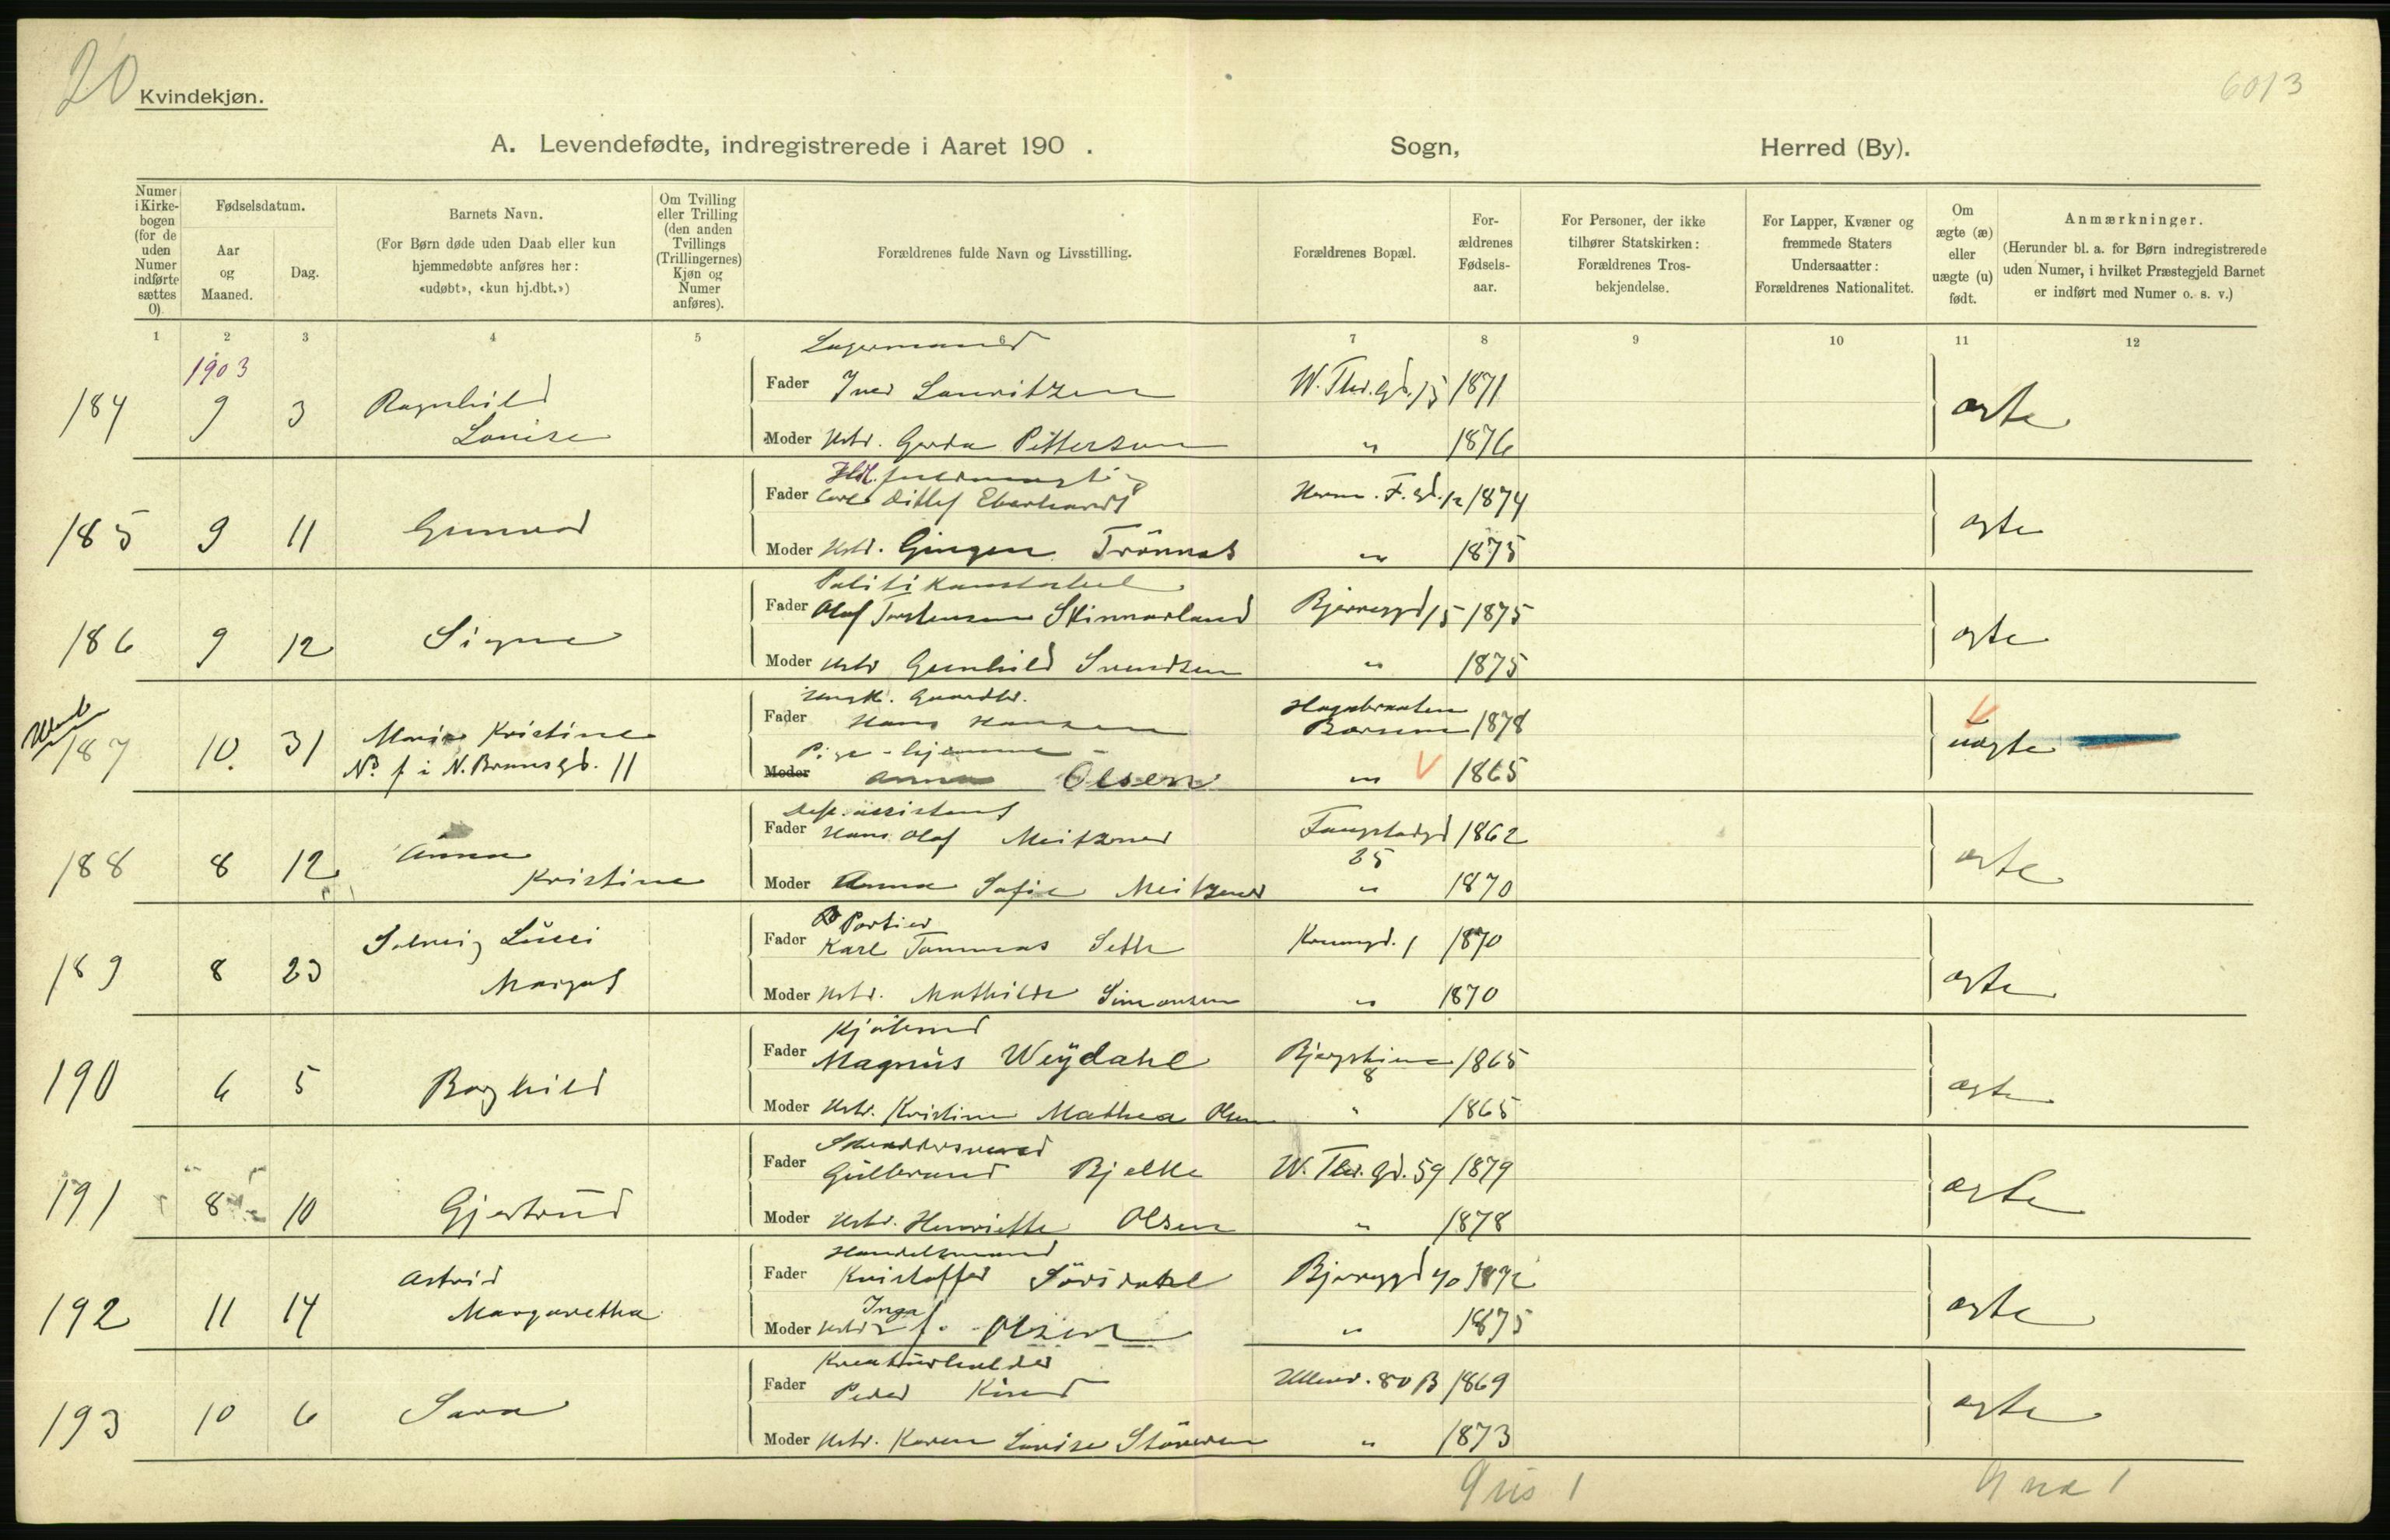 20
Kvindekjøn.
6013
A. Levendefødte, indregistrerede i Aaret 190 . Sogn, Herred (By).
Numer i Kirke-bogen (for de uden Numer indførte sættes 0).
Fødselsdatum.
Aar og Maaned.
Dag.
Barnets Navn.
(For Børn døde uden Daab eller kun hjemmedøbte anføres her: «udøbt», «kun hj.dbt.»)
Om Tvilling eller Trilling (den anden Tvillings (Trillingernes) Kjøn og Numer anføres).
Forældrenes fulde Navn og Livsstilling.
Forældrenes Bopæl.
For-ældrenes Fødsels-aar.
For Personer, der ikke tilhører Statskirken: Forældrenes Tros-bekjendelse.
For Lapper, Kvæner og fremmede Staters Undersaatter: Forældrenes Nationalitet.
Om ægte (æ) eller uægte (u) født.
Anmærkninger.
(Herunder bl. a. for Børn indregistrerede uden Numer, i hvilket Præstegjeld Barnet er indført med Numer o. s. v.)
1 2 3 4 5 6 7 8 9 10 11 12
1903
Lagermand
184 9 3 Ragnhild Louise
Fader Iver Lauritzen W. Thr. gd. 15 1871 ægte
Moder Hstr. Gerda Pettersen " 1876
Hdl. fuldmægtig
185 9 11 Gunvor
Fader Carl Ditlef Eberhardt Herm. F. gd. 12 1874 ægte
Moder Hstr. Gingen Trønnes " 1875
Politikonstabel
186 9 12 Signe
Fader Olaf Torstensen Skinnarland Bjerregd 15 1875 ægte
Moder Hstr Gunhild Svendsen " 1875
Ungk. Gaardbr.
187 10. 31 Marie Kristine
No f i N. Brunsgd. 11
Fader Hans Hansen Hagabraaten Bærum 1878 uægte
Pige - hjemme -
Moder Anna Olsen " 1865
assistent
188 8 12 Anna Kristine
Fader Hans Olaf Meitzner 25 1862 ægte
Moder Anna Sofie Meitzner " 1870
Portier
189 8 23 Solveig Lucci Margot
Fader Karl Tommas Seth 1 1870 ægte
Moder Hstr. Mathilde Simonsen " 1870
Kjøbmd
190 6 5 Borghild
Fader Magnus Weydahl 8 1865 ægte
Moder Hstr. Kristine Mathea Olsen " 1865
Skræddersvend
191 8 10 Gjertrud
Fader Gulbrand Bjelke W. Thr. gd. 59 1879 ægte
Moder Hstr. Henriette Olsen " 1878
Handelsmand
192 11 14 Astrid Margaretha
Fader Kristoffer Sørsdahl Bjerregd 40 1872 ægte
Moder Hstr Inga f. Olsen " 1875
Kreaturhandler
193 10 6 Sara
Fader Peder Ullevv. 80 B 1869 ægte
Moder Hstr. Karen Lovise Størersen " 1873
9 1
9 1